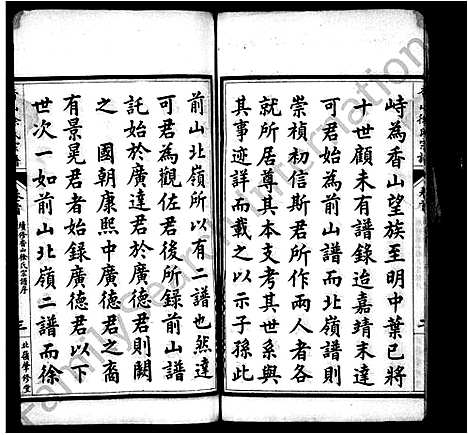 峙為香山望族至明中葉已將
十世顧未有譜錄迨嘉靖末達
可君為前山譜而北嶺譜則
崇禎初信斯君所作兩人者各
就所居尊其本支考其世系與
其事迹詳而載之以示子孫此
二
前山北嶺所以有二譜也然達
可君為觀佐君後所錄前山譜
託始於廣達君於廣德君則闕
之 國朝康熙中廣德君之裔
有景晃君者始於廣德君以下
世次一如前山北嶺二譜而徐
卷首
續修香山徐氏宗譜序
三
北嶺肇修堂
FamilySearch International